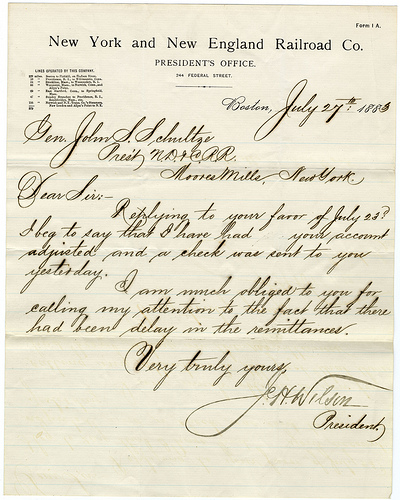 Form 1 A.
New York and New England Railroad Co.
PRESIDENT'S OFFICE.
244 FEDERAL STREET.
LINES OPERATED BY THIS COMPANY.
Boston, July 27th 1883
Gen. John S. Schultze
Prest N.D. & C.R.R.
Moores Mills, New York.
Dear Sir:-
Replying to your favor of July 23d
I beg to say that I have had your account
adjusted and a check was sent to you
yesterday.
I am much obliged to you for
calling my attention to the fact that there
had been delay in the remittances.
Very truly yours,
J.H. Wilson
President